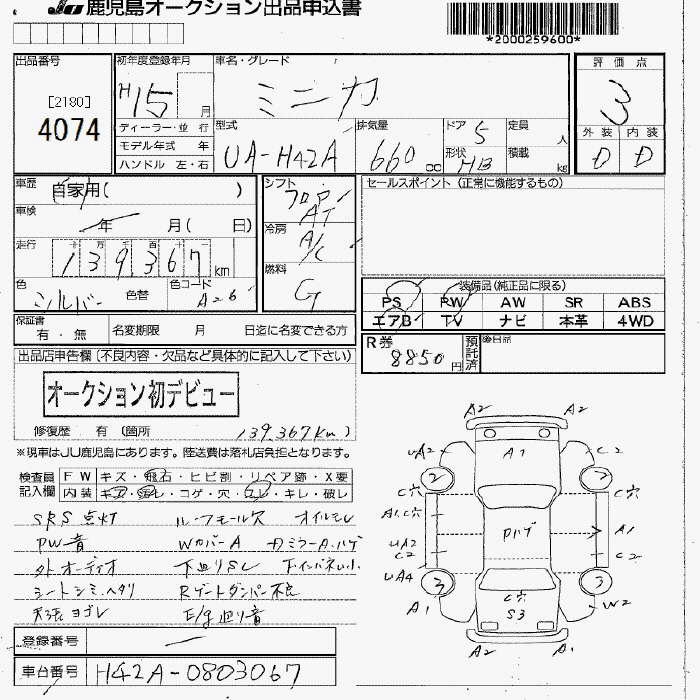 JU鹿児島オークション出品申込書
*2000259600*
出品番号
[2180]
4074
初年度登録年月
H15 月
ディーラー・並 行
モデル年式 年
ハンドル 左・右
車名・グレード
ミニカ
型式
UA-H42A
排気量
660cc
ドア 5
形状 HB
定員 人
積載 kg
評価点
3
外装 内装
D D
車歴
自家用( )
車検
年 月( 日)
走行
十 万 千 百 十 一
139367km
色
シルバー 色替
色コード
A26
シフト
フロア
AT
冷房
A/C
燃料
G
セールスポイント (正常に機能するもの)
装備品(純正品に限る)
PS PW AW SR ABS
エアB TV ナビ 本革 4WD
保証書
有・無
名変期限 月 日迄に名変できる方
R券
8850円
預託済
後日品
出品店申告欄(不良内容・欠品など具体的に記入して下さい)
オークション初デビュー
修復歴 有 (箇所 139.367km)
※現車はJU鹿児島にあります。陸送費は落札店負担となります。
検査員
記入欄
FW キズ・飛石・ヒビ割・リペア跡・X要
内装 キズ・汚レ・コゲ・穴・スレ・キレ・破レ
SRS点灯 ルーフモール欠 オイルモレ
PW音 WカバーA Dミラー A.ハゲ
外オーディオ 下廻りSL
シートシミ.ヘタリ Rゲートダンパー不良
天張ヨゴレ E/g廻り音
A2 A2
UA2 A1 C2
2 2
C穴 C穴
A1.C穴 Pハゲ A1
UA2
C2 C2
UA4
3 3
C穴
A1 S3 W2
A2 A1
登録番号 ー
車台番号 H42A-0803067